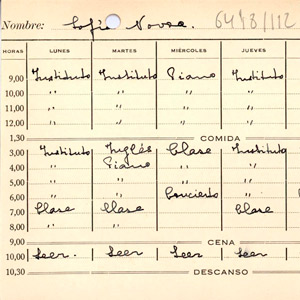 Nombre: Sofía Novoa. 6478/112
HORAS LUNES MARTES MIÉRCOLES JUEVES
9,00 Instituto Instituto Piano Instituto
10,00 " " " "
11,00 " " " "
12,00 " " " "
1,30 COMIDA
3,00 Instituto Inglés Clase Instituto
4,00 " Piano " "
5,00 " " " "
6,00 " " Concierto "
7,00 Clase Clase " Clase
8,00 " " " "
9,00 CENA
10,00 Leer. Leer Leer Leer
10,30 DESCANSO